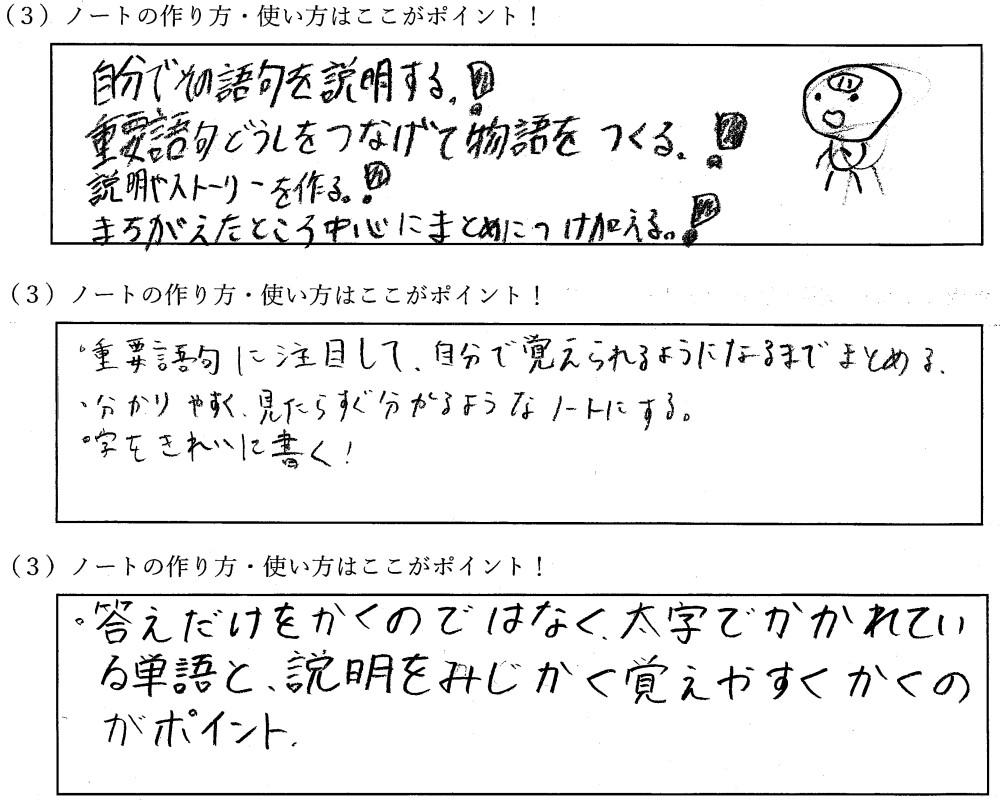 （3）ノートの作り方・使い方はここがポイント！
自分でその語句を説明する。!
重要語句どうしをつなげて物語をつくる。!
説明やストーリーを作る。!
まちがえたところ中心にまとめにつけ加える。!
（3）ノートの作り方・使い方はここがポイント！
・重要語句に注目して、自分で覚えられるようになるまでまとめる、
・分かりやすく、見たらすぐ分かるようなノートにする。
・字をきれいに書く！
（3）ノートの作り方・使い方はここがポイント！
・答えだけをかくのではなく、太字でかかれてい
る単語と、説明をみじかく覚えやすくかくの
がポイント、